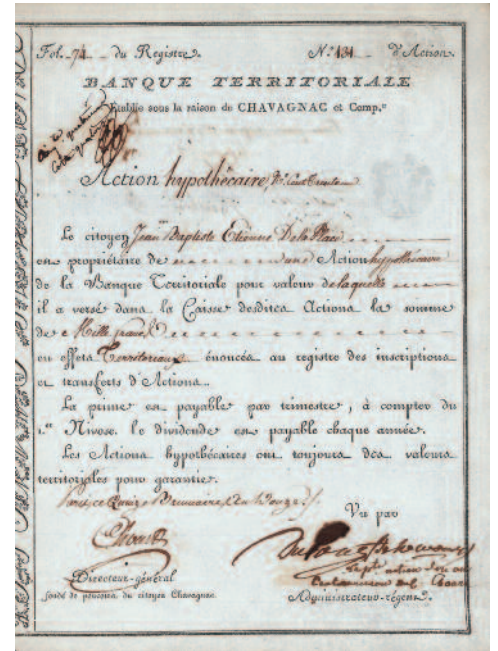 Fol. 74 du Registre. N.° 131 d'Action.
BANQUE TERRITORIALE
Établie sous la raison de CHAVAGNAC et Comp.ie
Action hypothécaire N.° Cent trente
Le citoyen Jean Baptiste Etienne Dela Place
est propriétaire de une Action hypothécaire
de la Banque Territoriale pour valeur delaquelle
il a versé dans la Caisse desdites Actions la somme
de Mille francs
en effets Territoriaux énoncés au registre des inscriptions
et transferts d'Actions.
La prime est payable par trimestre, à compter du
1.er Nivose. le dividende est payable chaque année.
Les Actions hypothécaires ont toujours des valeurs
territoriales pour garantie.
ce Quinze Brumaire, an Douze
Vu par
Directeur-général
fondé de pouvoirs du citoyen Chavagnac
Administrateur-régent.